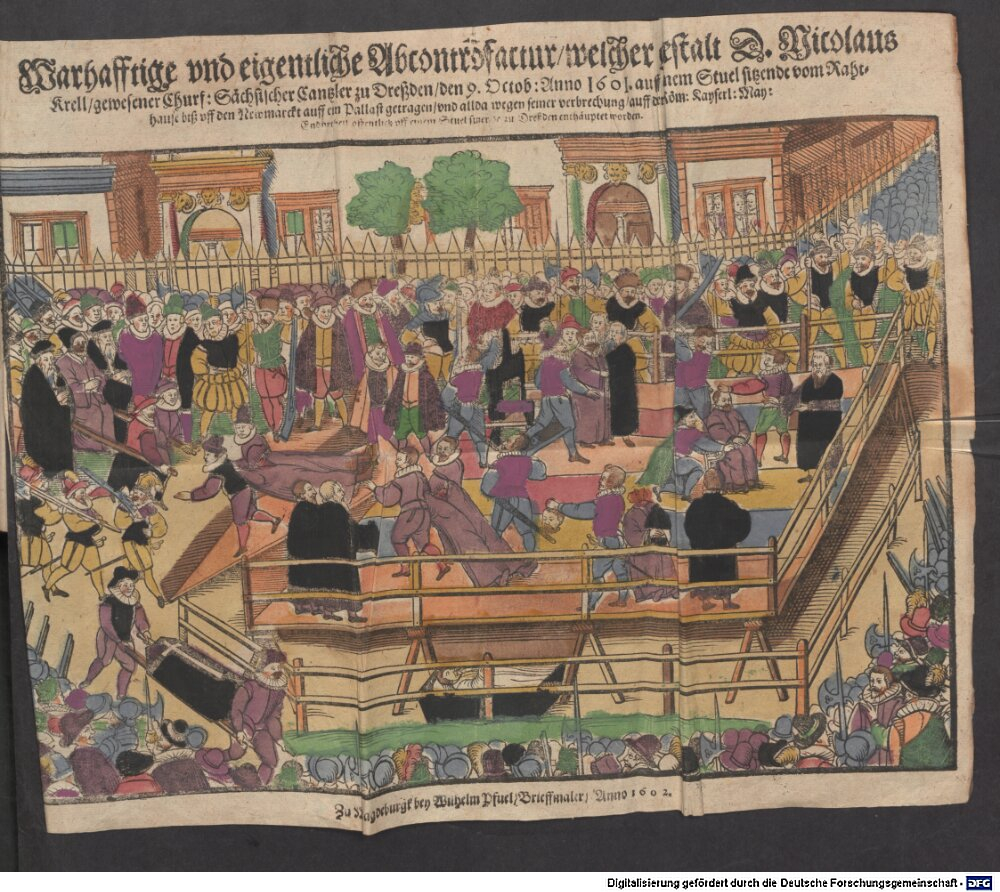 Warhafftige vnd eigentliche Abcontrofactur/welcher estalt D. Nicolaus
Krell/gewesener Churf: Sächsischer Cantzler zu Dreßden/den 9. Octob: Anno 1601. auf nem Stuel sitzende vom Raht-
hause biß vff den Newmarckt auff ein Pallast getragen/vnd allda wegen seiner verbrechung/auff der öm: Kayserl: May:
öffentlich vff einem Stuel zu Dreßden enthäuptet worden.
Zu Magdeburgk bey Wilhelm Pfuel/Brieffmaler/ Anno 1602.
Digitalisierung gefördert durch die Deutsche Forschungsgemeinschaft - DFG